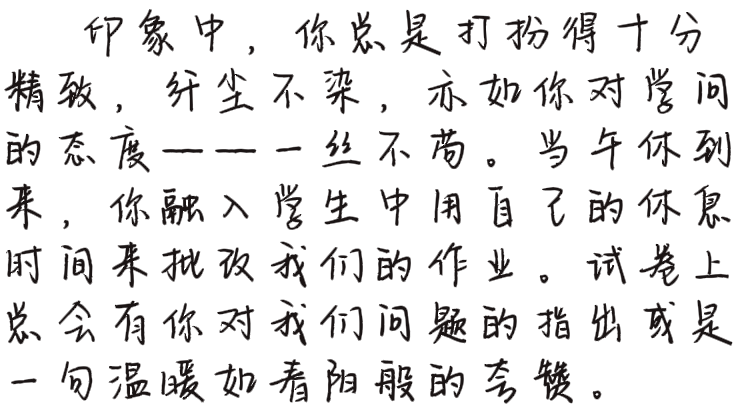 印象中，你总是打扮得十分
精致，纤尘不染，亦如你对学问
的态度——一丝不苟。当午休到
来，你融入学生中用自己的休息
时间来批改我们的作业。试卷上
总会有你对我们问题的指出或是
一句温暖如春阳般的夸赞。